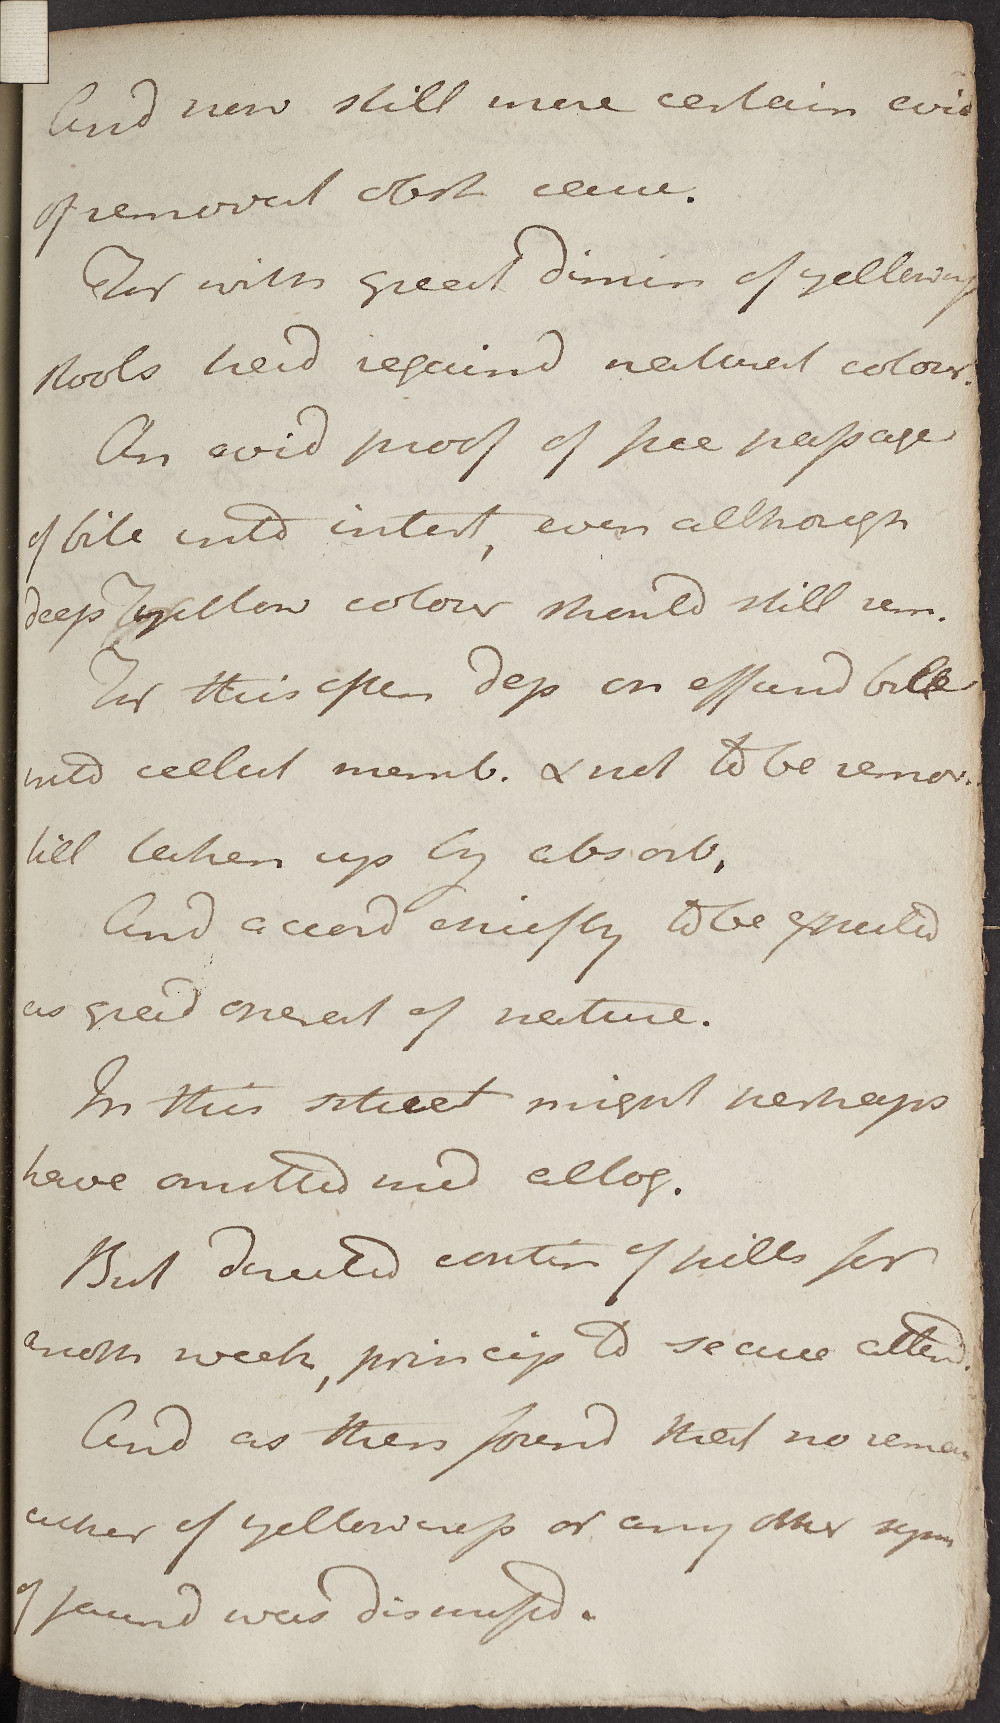 And now still more certain evid
of removal obst cause.
For with great dimin of yellowness
stools had regaind natural colour.
An evid proof of free passage
of bile into intest, even although
deep yellow colour should still rem.
For this often dep on effusd bile
into cellul memb. & not to be remov.
till taken up by absorb,
And accord chiefly to be expected
as grad operat of nature.
In this state might perhaps
have omitted med altog.
But directed contin of pills for
anoth week, princip to secure attend.
And as then found that no remain
either of yellowness or any other sym
of jaund was dismissd.